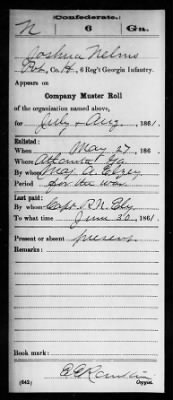 (Confederate.)
N 6 Ga.
Joshua Nelms
Pvt, Co. H, 6 Reg't Georgia Infantry.
Appears on
Company Muster Roll
of the organization named above,
for July & Aug, 1861.
Enlisted:
When May 27, 186
Where Atlanta Ga
By whom Maj. A.
Period for the war
Last paid:
By whom Capt. R. N. Ely
To what time June 30, 1861.
Present or absent present
Remarks:
Book mark:
(642) Copyist.